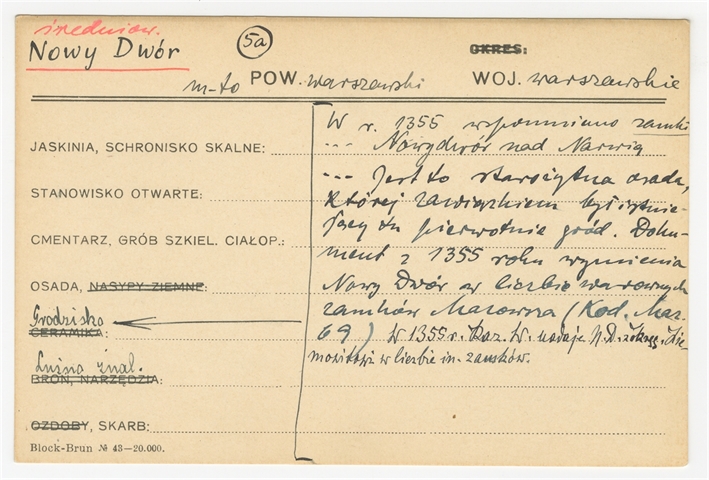 średniow.
Nowy Dwór
5a
OKRES:
m-to POW. warszawski WOJ. warszawskie
JASKINIA, SCHRONISKO SKALNE:
STANOWISKO OTWARTE:
CMENTARZ, GRÓB SZKIEL. CIAŁOP.:
OSADA, NASYPY ZIEMNE:
Grodzisko
CERAMIKA:
Luźno znal.
BROŃ, NARZĘDZIA:
OZDOBY, SKARB:
Block-Brun № 43—20.000.
W r. 1355 wspomniano zamki
... Nowydwór nad Narwią
... Jest to starożytna osada,
której zawiązkiem był istnie-
jący tu pierwotnie gród. Doku-
ment z 1355 roku wymienia
Nowy Dwór w liczbie warownych
zamków Mazowsza (Kod. Maz.
69) W 1355 r. Kaz. W. nadaje N.D. z okręg. Zie-
mowitowi w liczbie in. zamków.